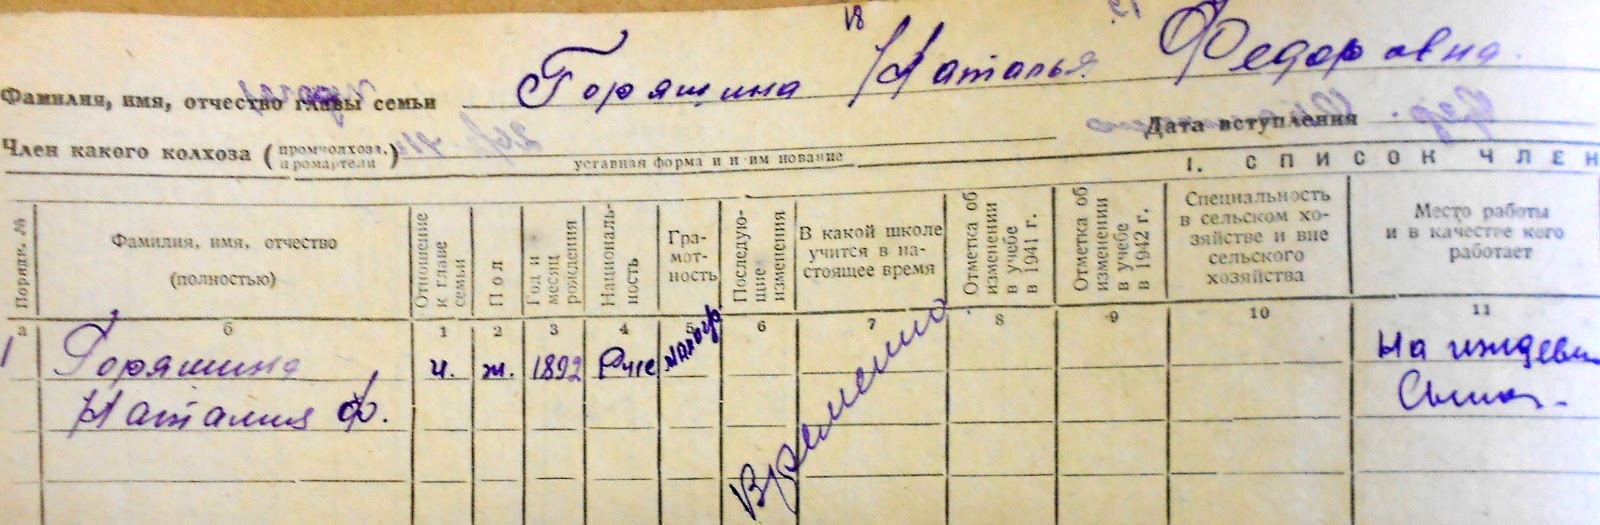 18
Фамилия, имя, отчество главы семьи Горяшина Наталья Федоровна.
Член какого колхоза (промколхоза, промартели) уставная форма и н им нование Дата вступления
I. СПИСОК ЧЛЕН
Порядк. № Фамилия, имя, отчество (полностью) Отношение к главе семьи Пол Год и месяц рождения Националь-ность Гра-мот-ность Последую-щие изменения В какой школе учится в на-стоящее время Отметка об изменении в учебе в 1941 г. Отметка об изменении в учебе в 1942 г. Специальность в сельском хо-зяйстве и вне сельского хозяйства Место работы и в качестве кого работает
а б 1 2 3 4 5 6 7 8 9 10 11
1 Горяшина ж. 1892 малогр. На иждеве
Наталия Ф. Сына
Временно